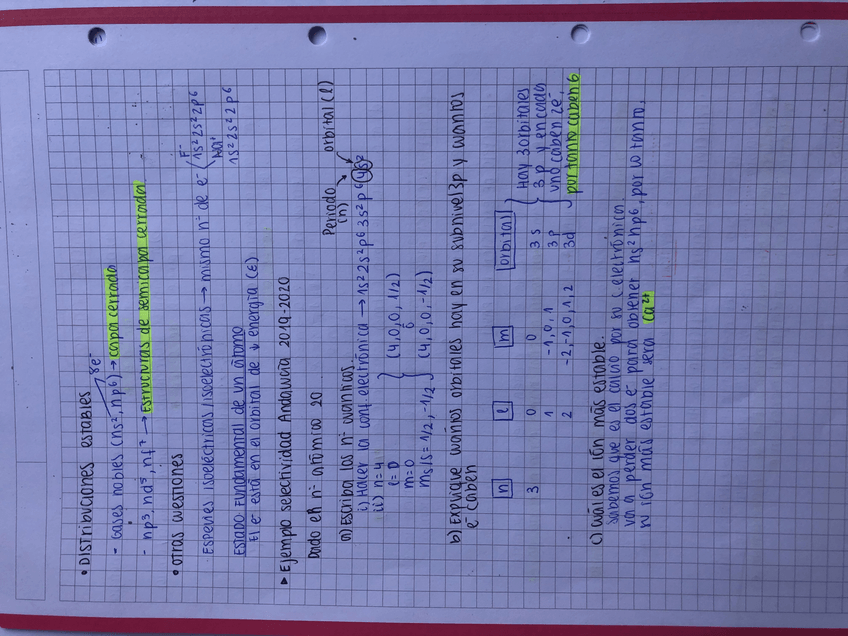 • DISTRIBUCIONES ESTABLES
- Gases nobles (ns², np⁶) → capa cerrada
8e⁻
- np³, nd⁵, nf⁷ → Estructuras de semicapa cerrada
• OTRAS CUESTIONES
F⁻
ESPECIES isoeléctricas/isoelectrónicas → mismo nº de e⁻ 1s²2s²2p⁶
Na⁺
1s²2s²2p⁶
ESTADO FUNDAMENTAL DE UN átomo
El e⁻ está en el orbital de ↓ energía (E)
► Ejemplo selectividad Andalucía 2019-2020
Dado el nº atómico 20
Periodo (n)
orbital (l)
a) Escriba los nº cuánticos.
i) Hacer la conf. electrónica → 1s²2s²p⁶3s²p⁶4s²
ii) n=4
l=0
m=0
ms/s=1/2, -1/2
(4,0,0,1/2)
ó
(4,0,0,-1/2)
b) Explique cuántos orbitales hay en su subnivel 3p y cuántos
e⁻ caben
n l m orbital
3 0 0 3s
1 -1,0,1 3p
2 -2,-1,0,1,2 3d
Hay 3 orbitales
3p y en cada
uno caben 2e⁻,
por tanto caben 6
c) Cuál es el ión más estable.
Sabemos que es el calcio por su c. electrónica.
va a perder dos e⁻ para obtener ns²np⁶, por lo tanto,
su ión más estable será Ca²⁺